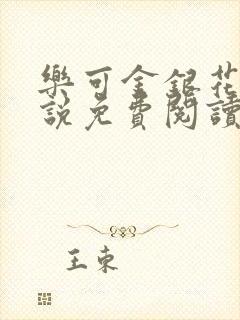 樂可金銀花
說免費閱讀
王東